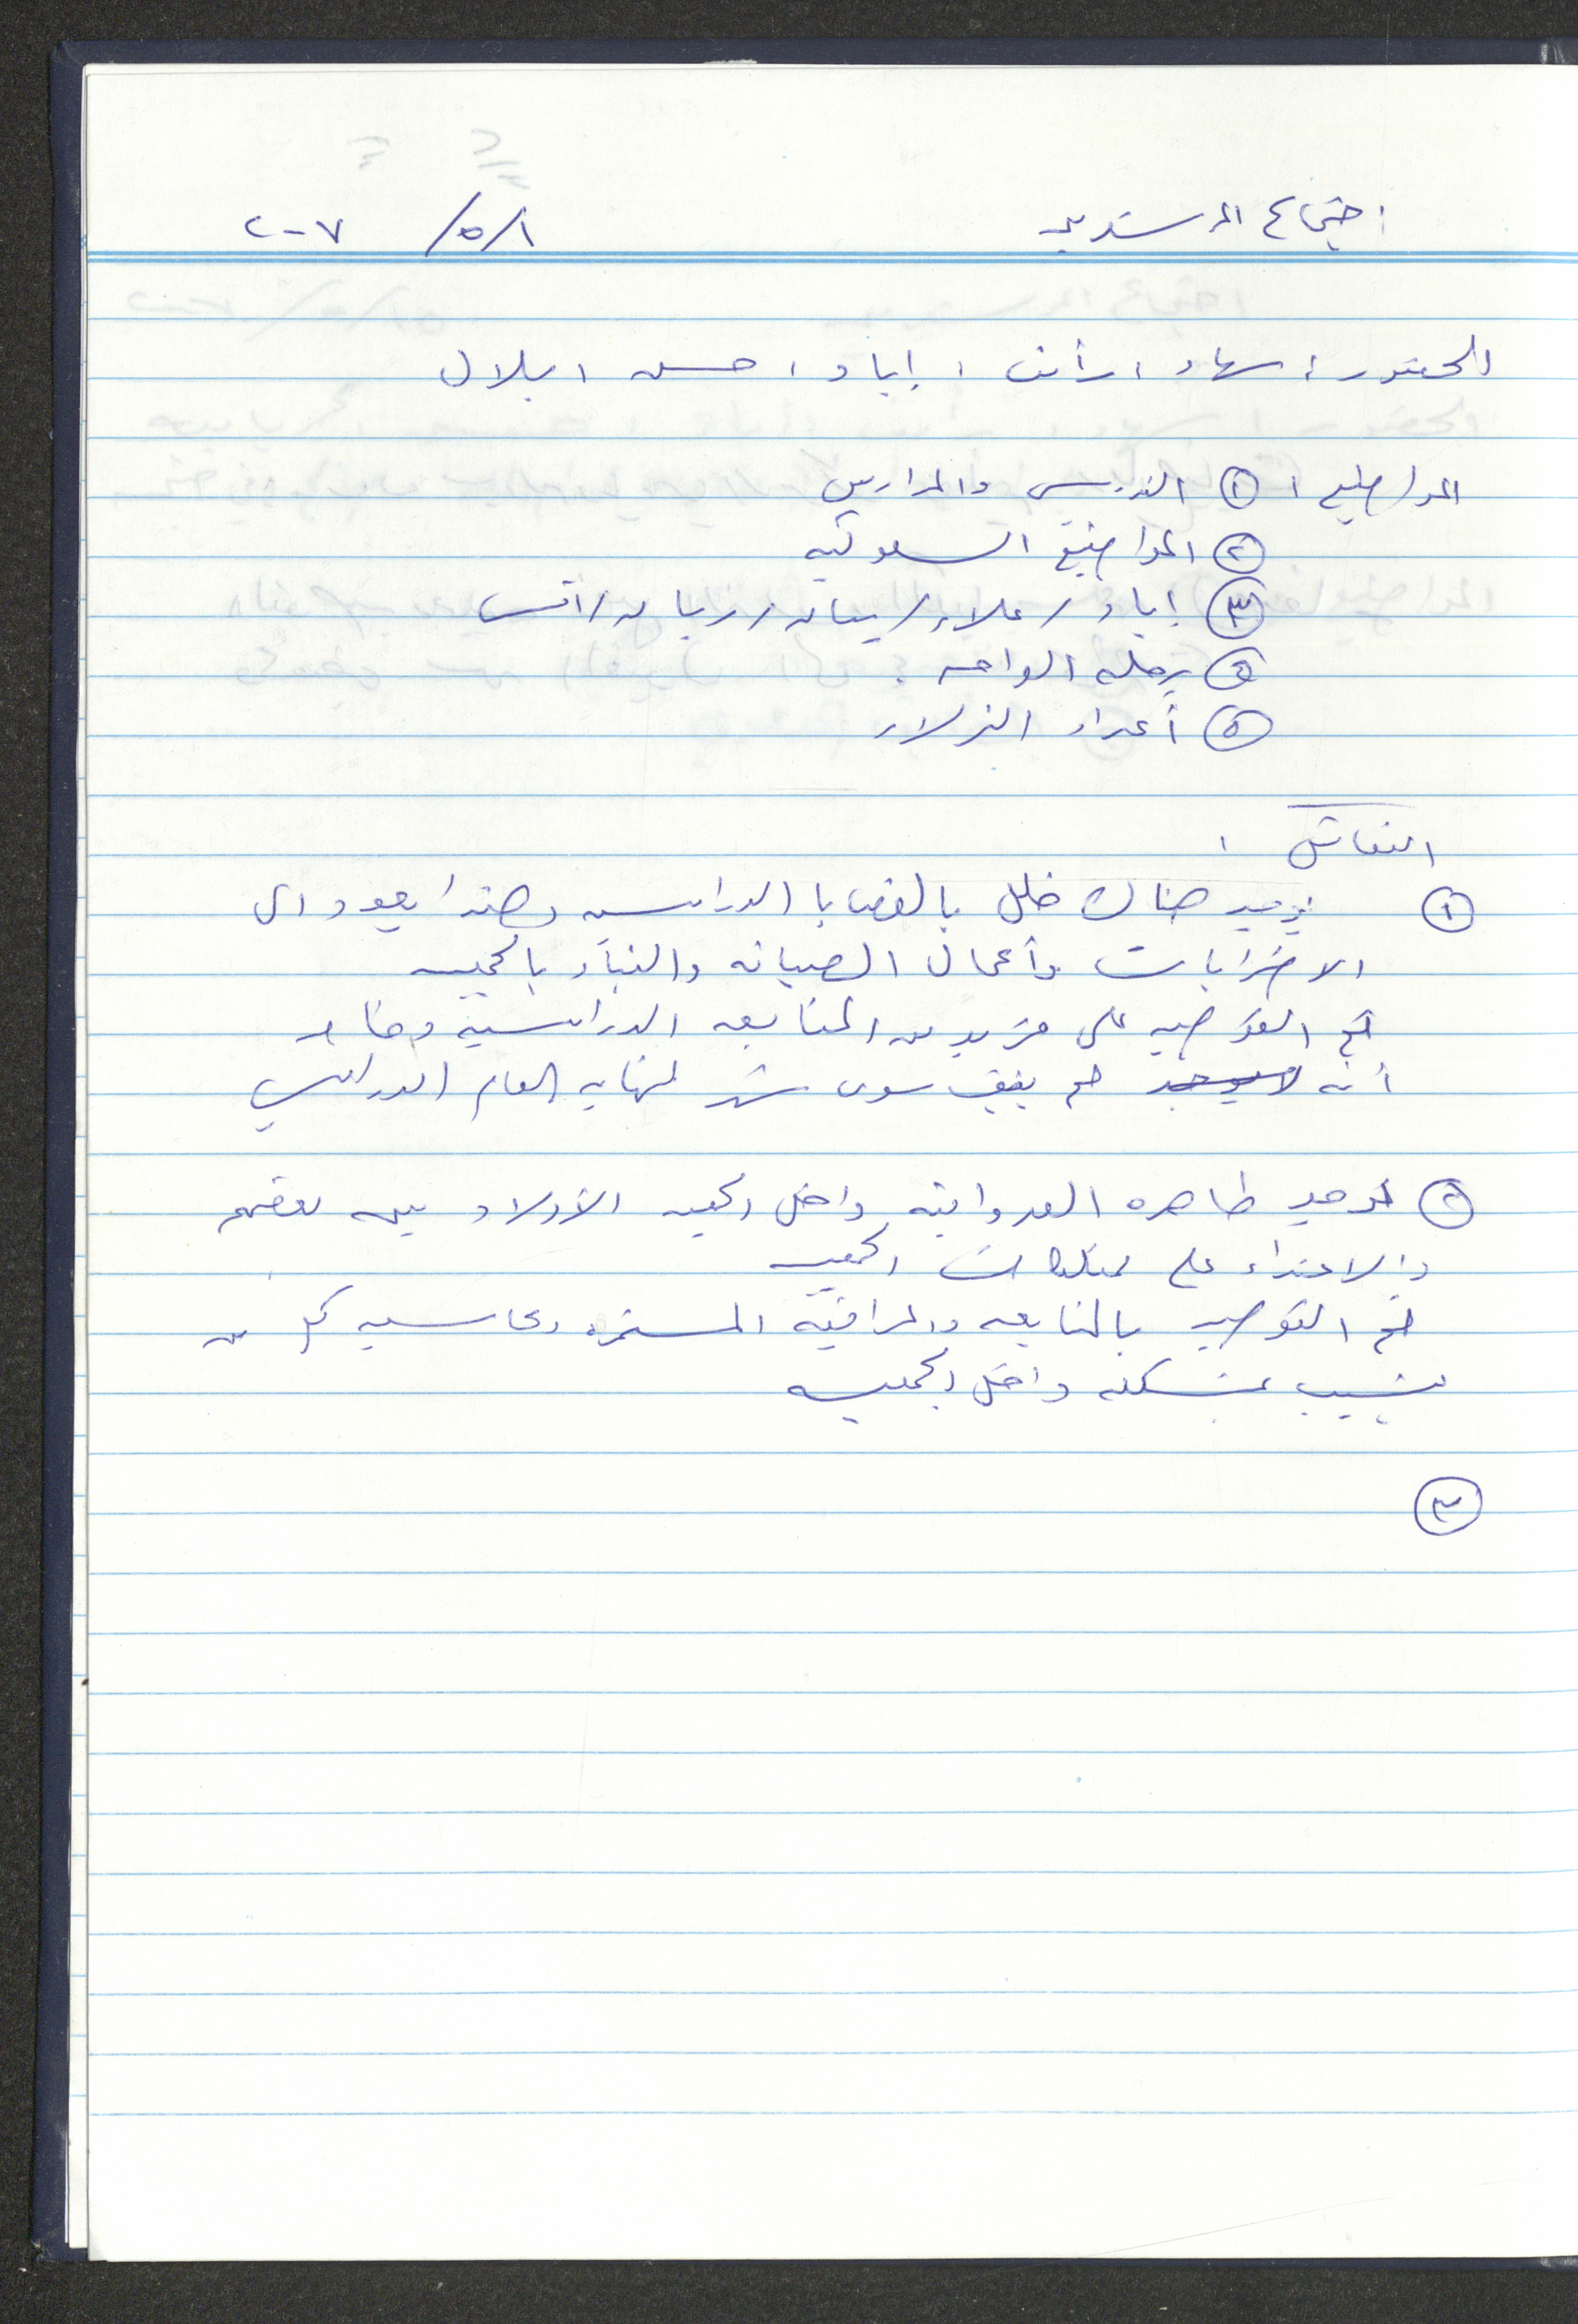 اجتماع المرشدين ١/٥/ ٢٠٠٧
الحضور : سهاد ، رأفت ، إياد ، حسن ، بلال
المواضيع : ① التدريس والمدارس
② المواضيع السلوكية
③ إياد / علاء / بيان / ريان / أنس
④ رحلة الواحة .
⑤ أعداد النزلاء
النقاش :
① يوجد هناك خلل بالقضايا الدراسيه وهذا يعود الى
الاضرابات وأعمال الصيانه والبناء بالجمعيه
تم التوصيه على مزيد من المتابعه الدراسية وخاصة
أنه لا يوجد لم يبقى سوى شهر لنهاية العام الدراسي
② توجد ظاهره العدوانيه داخل الجمعيه الأولاد بين بعضهم
والاعتداء على ممتلكات الجمعيه
تم التوصيه بالمتابعه والمراقبة المستمره ومحاسبه كل من
يتسبب بمشكله داخل الجمعيه
③